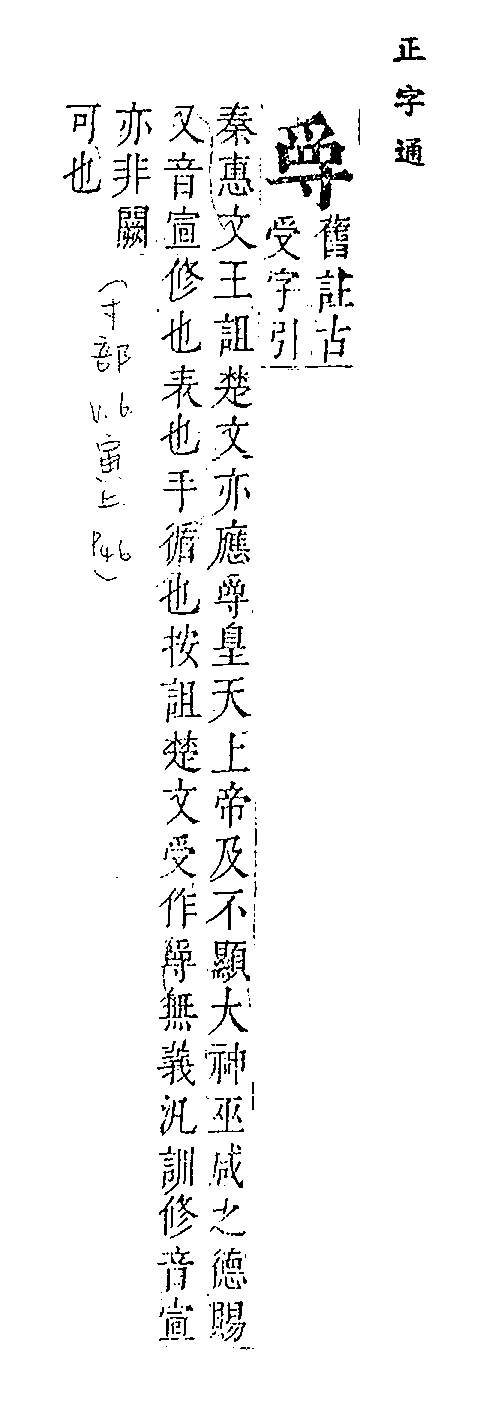 正字通
舊註古
受字引
秦惠文王詛楚文亦應皇天上帝及不顯大神巫咸之德賜
又音宣修也表也手循也按詛楚文受作無義汎訓修音宣
亦非闕
可也
(寸部 v.6 寅上 P46)